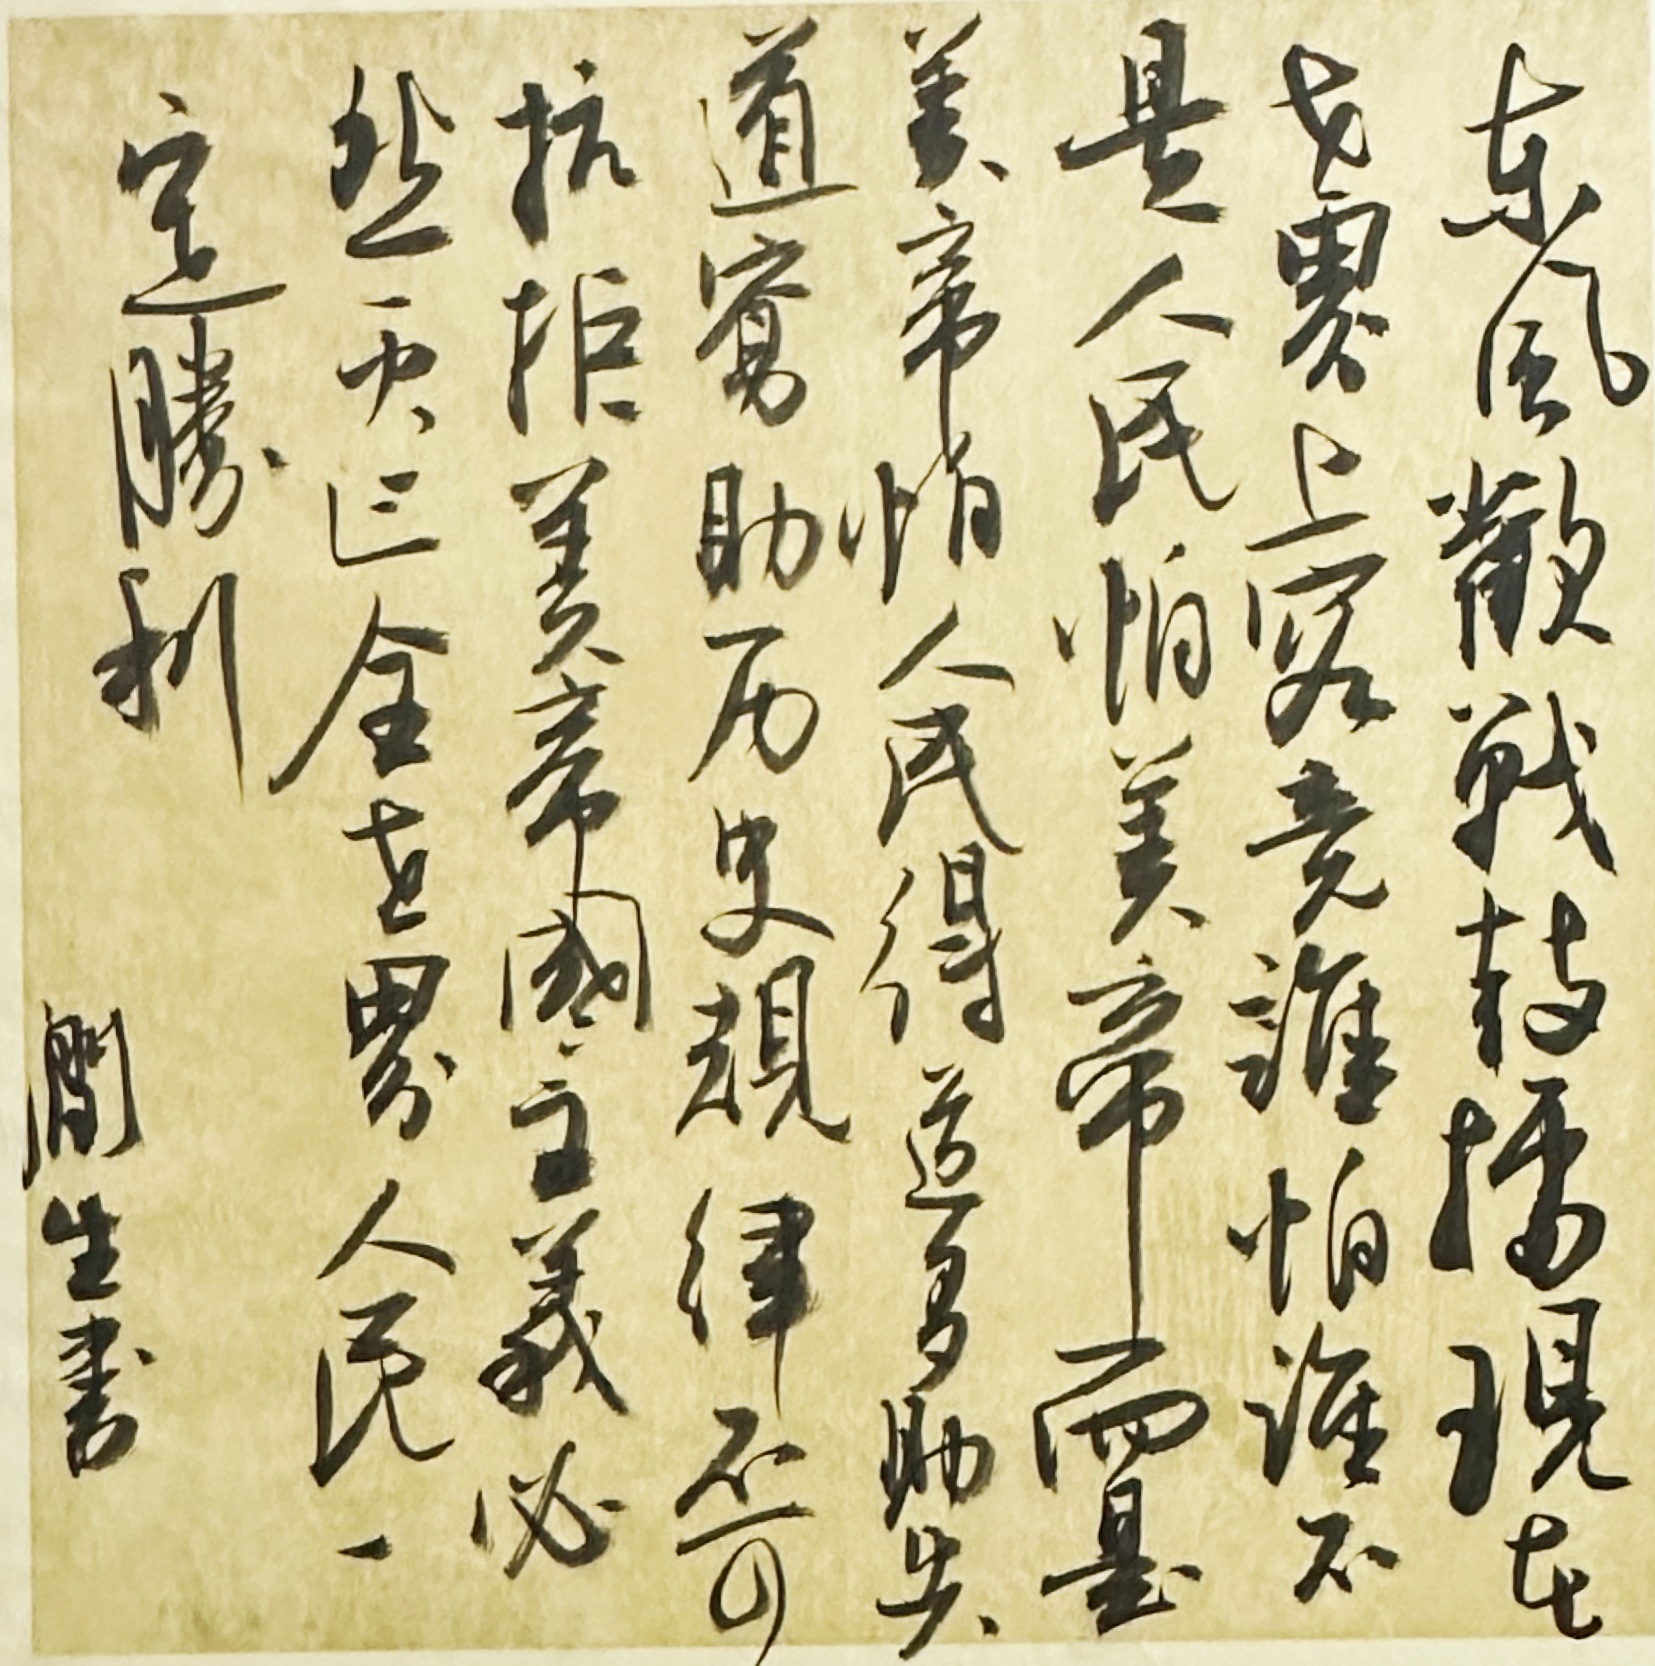 东风吹戰鼓擂現在
世界上究竟誰怕誰不
是人民怕美帝而是
美帝怕人民得道多助失
道寡助历史規律不可
抗拒美帝國主義必
然灭亡全世界人民一
定勝利
閒生書